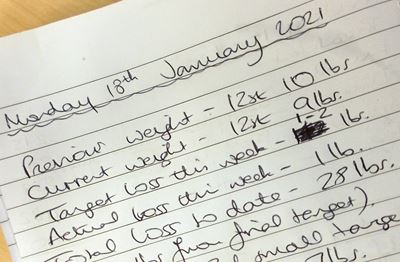 Monday 18th January 2021
Previous weight - 12st 10 lbs.
Current weight - 12st 9lbs.
Target loss this week - 1-2 lbs.
Actual loss this week - 1 lb.
Total loss to date - 28 lbs.
lbs from final target).
small targe
7lbs.